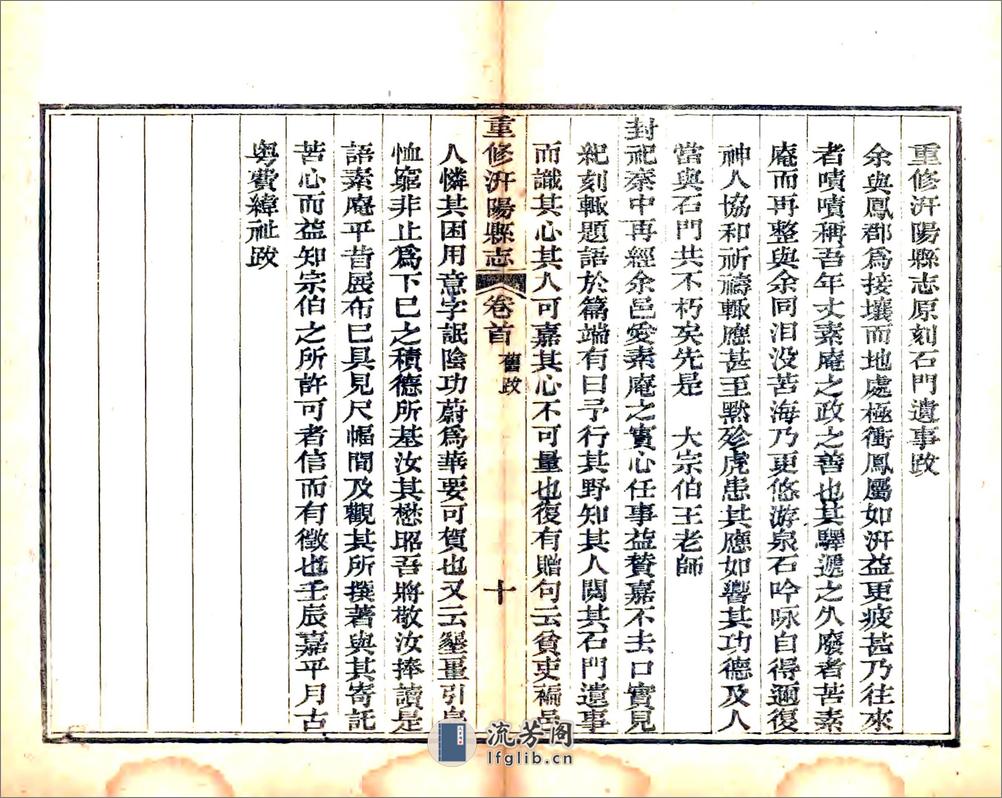 重修汧陽縣志原刻石門遺事跋
余與鳳郡為接壤而地處極衝鳳屬如汧益更疲甚乃往來
者嘖嘖稱吾年丈素庵之政之善也其驛遞之久廢者苦素
庵而再整與余同汨没苦海乃更悠游泉石吟咏自得迺復
神人協和祈禱輙應甚至黙殄虎患其應如響其功德及人
當與石門共不朽矣先是　大宗伯王老師
封祀秦中再經余邑愛素庵之實心任事益贊嘉不去口實見
紀刻輙題語於篇端有曰予行其野知其人閱其石門遺事
而識其心其人可嘉其心不可量也復有贈句云貧吏褊
重修汧陽縣志
卷首
舊跋
十
人憐其困用意字氓陰功蔚為華要可賀也又云壑畺引
恤窮非止為下巳之積德所基汝其懋昭吾將敬汝捧讀是
語素庵平昔展布巳具見尺幅間及觀其所撰著與其寄託
苦心而益知宗伯之所許可者信而有徵也壬辰嘉平月古
粤費緯祉跋
流芳阁
lfglib.cn